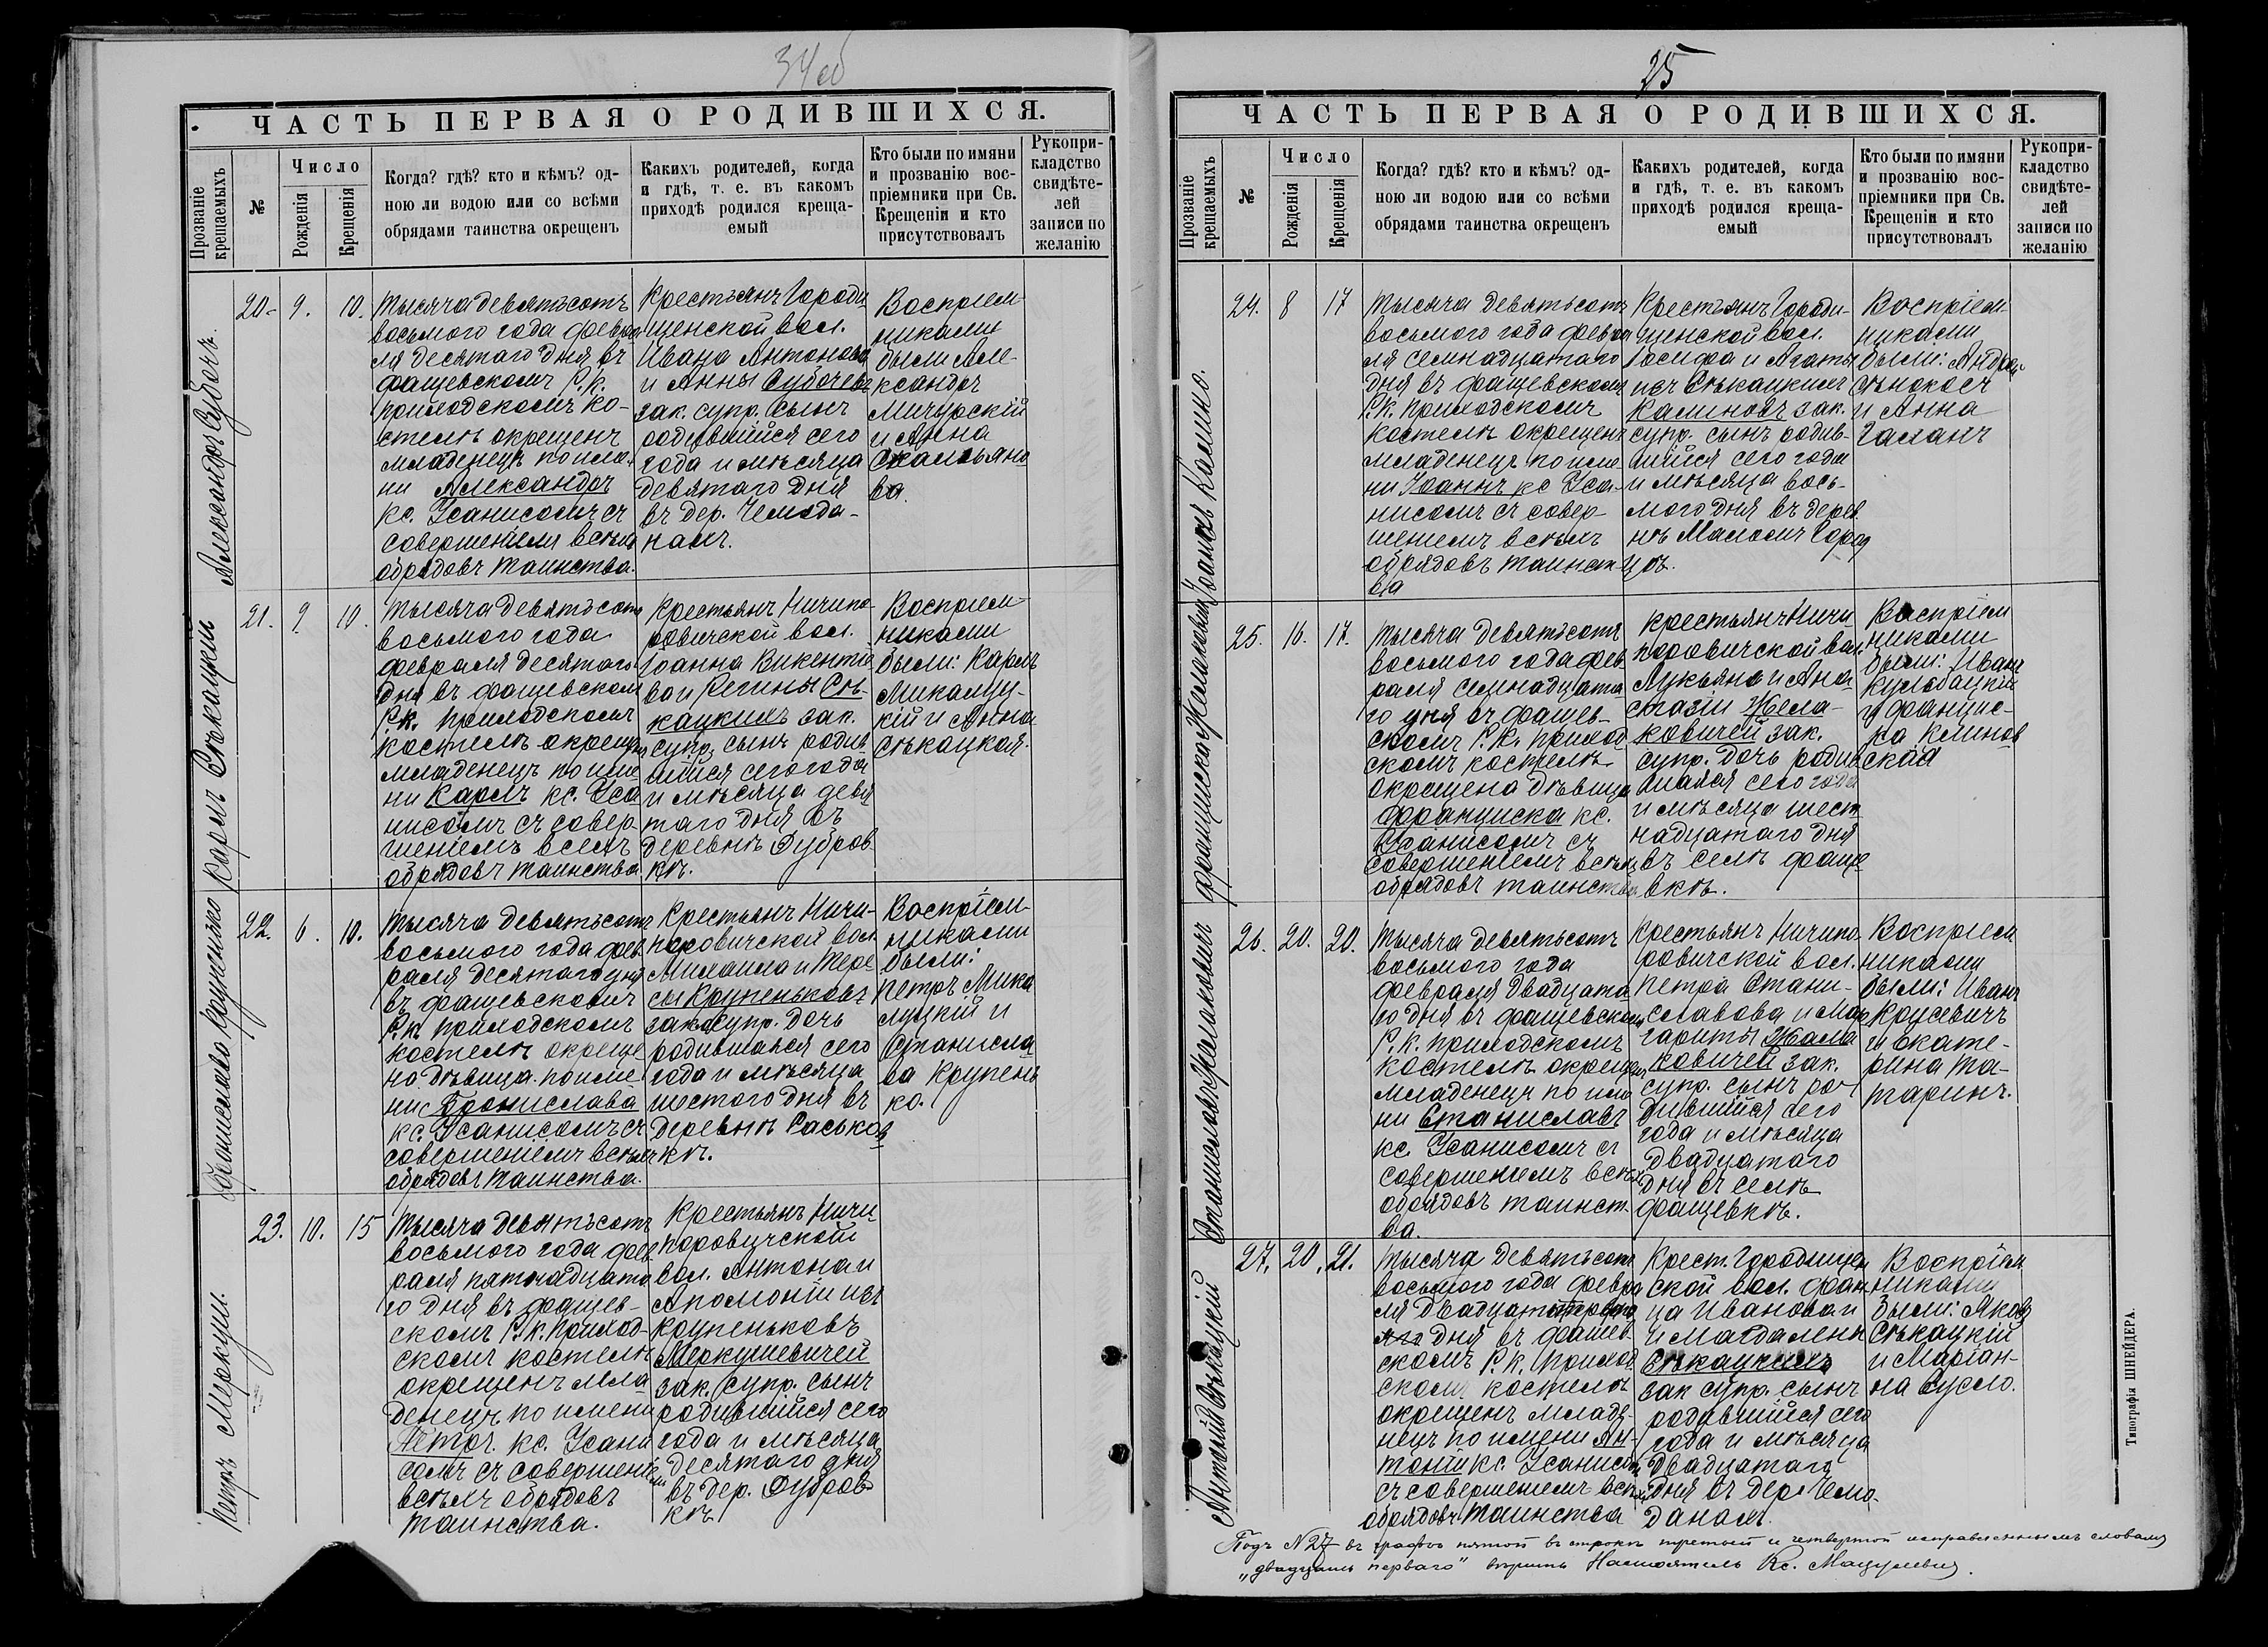 34об
ЧАСТЬ ПЕРВАЯ О РОДИВШИХСЯ.
Прозваніе крещаемыхъ
№
Число
Рожденія
Крещенія
Когда? гдѣ? кто и кѣмъ? од-
ною ли водою или со всѣми
обрядами таинства окрещенъ
Какихъ родителей, когда
и гдѣ, т. е. въ какомъ
приходѣ родился креща-
емый
Кто были по имяни
и прозванію вос-
пріемники при Св.
Крещеніи и кто
присутствовалъ
Рукопри-
кладство
свидѣте-
лей
записи по
желанію
Александръ Субочъ.
20.
9.
10.
Тысяча девятьсотъ
восьмого года февра
ля десятаго дня въ
фащевскомъ Р.К.
приходскомъ ко-
стелѣ окрещенъ
младенецъ по име-
ни Александръ
кс. Усанисомъ съ
совершеніемъ всѣхъ
обрядовъ таинства.
Крестьянъ Городи
щенской вол.
Ивана Антонова
и Анны Субочевъ
зак. супр. сынъ
родившійся сего
года и мѣсяца
девятаго дня
въ дер. Чемода-
нахъ.
Воспріем-
никами
были Але-
ксандръ
Мичурскій
и Анна
ва.
Карлъ Сѣкацкій
21.
9
10.
Тысяча девятьсотъ
восьмого года
февраля десятаго
дня въ фащевскомъ
Р.К. приходскомъ
костелѣ окрещенъ
младенецъ по име
ни Карлъ кс. Уса
нисомъ съ совер-
шеніемъ всехъ
обрядовъ таинства
Крестьянъ Ничипо-
ровичской вол.
Іоанна Викентіе
ва и Регины Сѣ-
кацкихъ зак.
супр. сынъ родив
шійся сего года
и мѣсяца девя
таго дня въ
деревнѣ Дубров
кѣ.
Воспріем-
никами
были: Карлъ
Микалуц-
кій и Анна
Сѣкацкая.
Брониславо Крупенько
22.
6.
10.
Тысяча девятьсотъ
восьмого года фев-
раля десятаго дня
въ фащевскомъ
Р.К. приходскомъ
костелѣ окреще
на дѣвица по име
ни Бронислава
кс. Усанисомъ съ
совершеніемъ всѣхъ
обрядовъ таинства.
Крестьянъ Ничи-
поровичской вол.
Михаила и Тере
сы Крупеньковъ
зак. супр. дочь
родившаяся сего
года и мѣсяца
шестого дня въ
деревнѣ Саськов
кѣ.
Воспріем-
никами
были:
Петръ Мика
луцкій и
Станисла
ва Крупень
ко.
Петръ Меркуш.
23.
10.
15
Тысяча девятьсотъ
восьмого года фев-
раля пятнадцата
го дня въ фащев-
скомъ Р.К. приход-
скомъ костелѣ
окрещенъ мла
денецъ по имени
Петръ. кс. Усани
сомъ съ совершеніе
всѣхъ обрядовъ
таинства.
Крестьянъ Ничи
поровичской
вол. Антона и
Аполоніи изъ
Крупеньковъ
Меркушевичей
зак. супр. сынъ
родившійся сего
года и мѣсяца
десятаго дня
въ дер. Дубров
кѣ
25
ЧАСТЬ ПЕРВАЯ О РОДИВШИХСЯ.
Прозваніе крещаемыхъ
№
Число
Рожденія
Крещенія
Когда? гдѣ? кто и кѣмъ? од-
ною ли водою или со всѣми
обрядами таинства окрещенъ
Какихъ родителей, когда
и гдѣ, т. е. въ какомъ
приходѣ родился креща-
емый
Кто были по имяни
и прозванію вос-
пріемники при Св.
Крещеніи и кто
присутствовалъ
Рукопри-
кладство
свидѣте-
лей
записи по
желанію
Іоаннъ Калино.
24.
8
17
Тысяча девятьсотъ
восьмого года февра
ля семнадцатаго
дня въ фащевскомъ
Р.К. приходскомъ
костелѣ окрещенъ
младенецъ по име
ни Іоаннъ кс Уса-
нисомъ съ совер-
шеніемъ всѣхъ
обрядовъ таинст-
ва
Крестьянъ Городи-
щенской вол.
Іосифа и Агаты
изъ Сѣкацкихъ
Калиновъ зак.
супр. сынъ родив-
шійся сего года
и мѣсяца вось-
мого дня въ дерев
нѣ Маломъ Город
цѣ.
Воспріем-
никами
были: Андрей
и Анна
Франциска Желаковичъ
25.
16.
17.
Тысяча девятьсотъ
восьмого года фев
раля семнадцата
го дня въ фащев-
скомъ Р.К. приход
скомъ костелѣ
окрещена дѣвица
Франциска кс.
Усанисомъ съ
совершеніемъ всѣхъ
обрядовъ таинства
Крестьянъ Ничи
поровичской вол.
Лукьяна и Ана-
стазіи Жела-
ковичей зак.
супр. дочь родив
шаяся сего года
и мѣсяца шест
надцатаго дня
въ селѣ фаще
вкѣ.
Воспріем
никами
были: Иванъ
Кулбацкій
и Францис-
ка Клинов
ская
Станиславъ Желаковичъ
26.
20.
20.
Тысяча девятьсотъ
восьмого года
февраля двадцата
го дня въ фащевскомъ
Р.К. приходскомъ
костелѣ окрещенъ
младенецъ по име
ни Станиславъ
кс. Усанисомъ съ
совершеніемъ всѣхъ
обрядовъ таинст-
ва.
Крестьянъ Ничипо
ровичской вол.
Петра Стани-
славова и Мар
гариты Жела
ковичей зак.
супр. сынъ ро-
дившійся сего
года и мѣсяца
двадцатаго
дня въ селѣ
фащевкѣ.
Воспріем
никами
были: Иванъ
Крусевичъ
и Екате-
рина Та-
таринъ.
Антоній Сѣкацкій
27.
20.
21.
Тысяча девятьсотъ
восьмого года февра
ля двадцать перваго
дня въ фащев-
скомъ Р.К. приход
скомъ костелѣ
окрещенъ младе-
нецъ по имени Ан-
тоній кс. Усанисомъ
съ совершеніемъ всѣхъ
обрядовъ таинства
Крест. Городищен
ской вол. Фран
ца Иванова и
и Магдалены
Сѣкацкихъ
зак супр. сынъ
родившійся сего
года и мѣсяца
двадцатаго
дня въ дер. Чемо-
данахъ.
Воспріем
никами
были: Яковъ
Сѣкацкій
и Маріан-
на Сусло.
Подъ № 27 въ графѣ пятой въ строкѣ третьей и четвертой исправленнымъ словамъ
„двадцать перваго" вѣрить Настоятель Кс. Мацулевич.
Типографія ШНЕЙДЕРА.